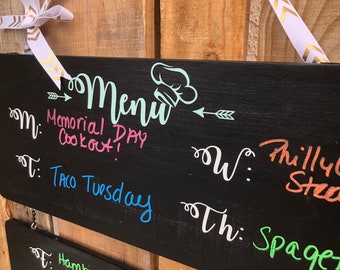 Menu
M: Memorial DAY
Cookout!
T: TACO TUESDAY
W: Philly
Stea
Th: Spaget
T: Hamb